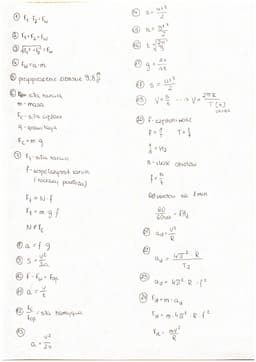 ① F₁ F₂ = Fw
② F₁ + F₂ = Fw
③ √F₁² + F₂² = Fw
④ Fw = a · m
⑤ przyspieszenie ziemskie 9,8 m/s²
⑥ siła
m - masa
Fc - siła
g - grawitacja
Fc = m · g
⑦ F₁ - siła tarcia
f - współczynnik tarcia
(rodzaj podłoża)
F₁ = N · f
F₁ = m · g · f
N = Fc
⑧ a = f · g
⑨ S = v²/2a
⑩ F - Fw = Fop
⑪ a = v/t
⑫ - siła hamująca
⑬
a = v²/2s
⑭ s = at²/2
⑮ h = gt²/2
⑯ t = √2h/g
⑰ g = 2h/t²
⑱ s = at²/2
⑲ V = → V = 2πR/T
⑳ f - częstotliwość
f = 1/T T = 1/f
1/s = Hz
n - ilość obrotów
f = n/t
60 obrotów na 1 min
60/60s = 1Hz
㉑ ad = v²/R
㉒ ad = 4π² · R/T²
㉓ ad = 4π² · R · f²
㉔ Fd = m · ad
Fd = m · 4π² · R · f²
Fd = mv²/R